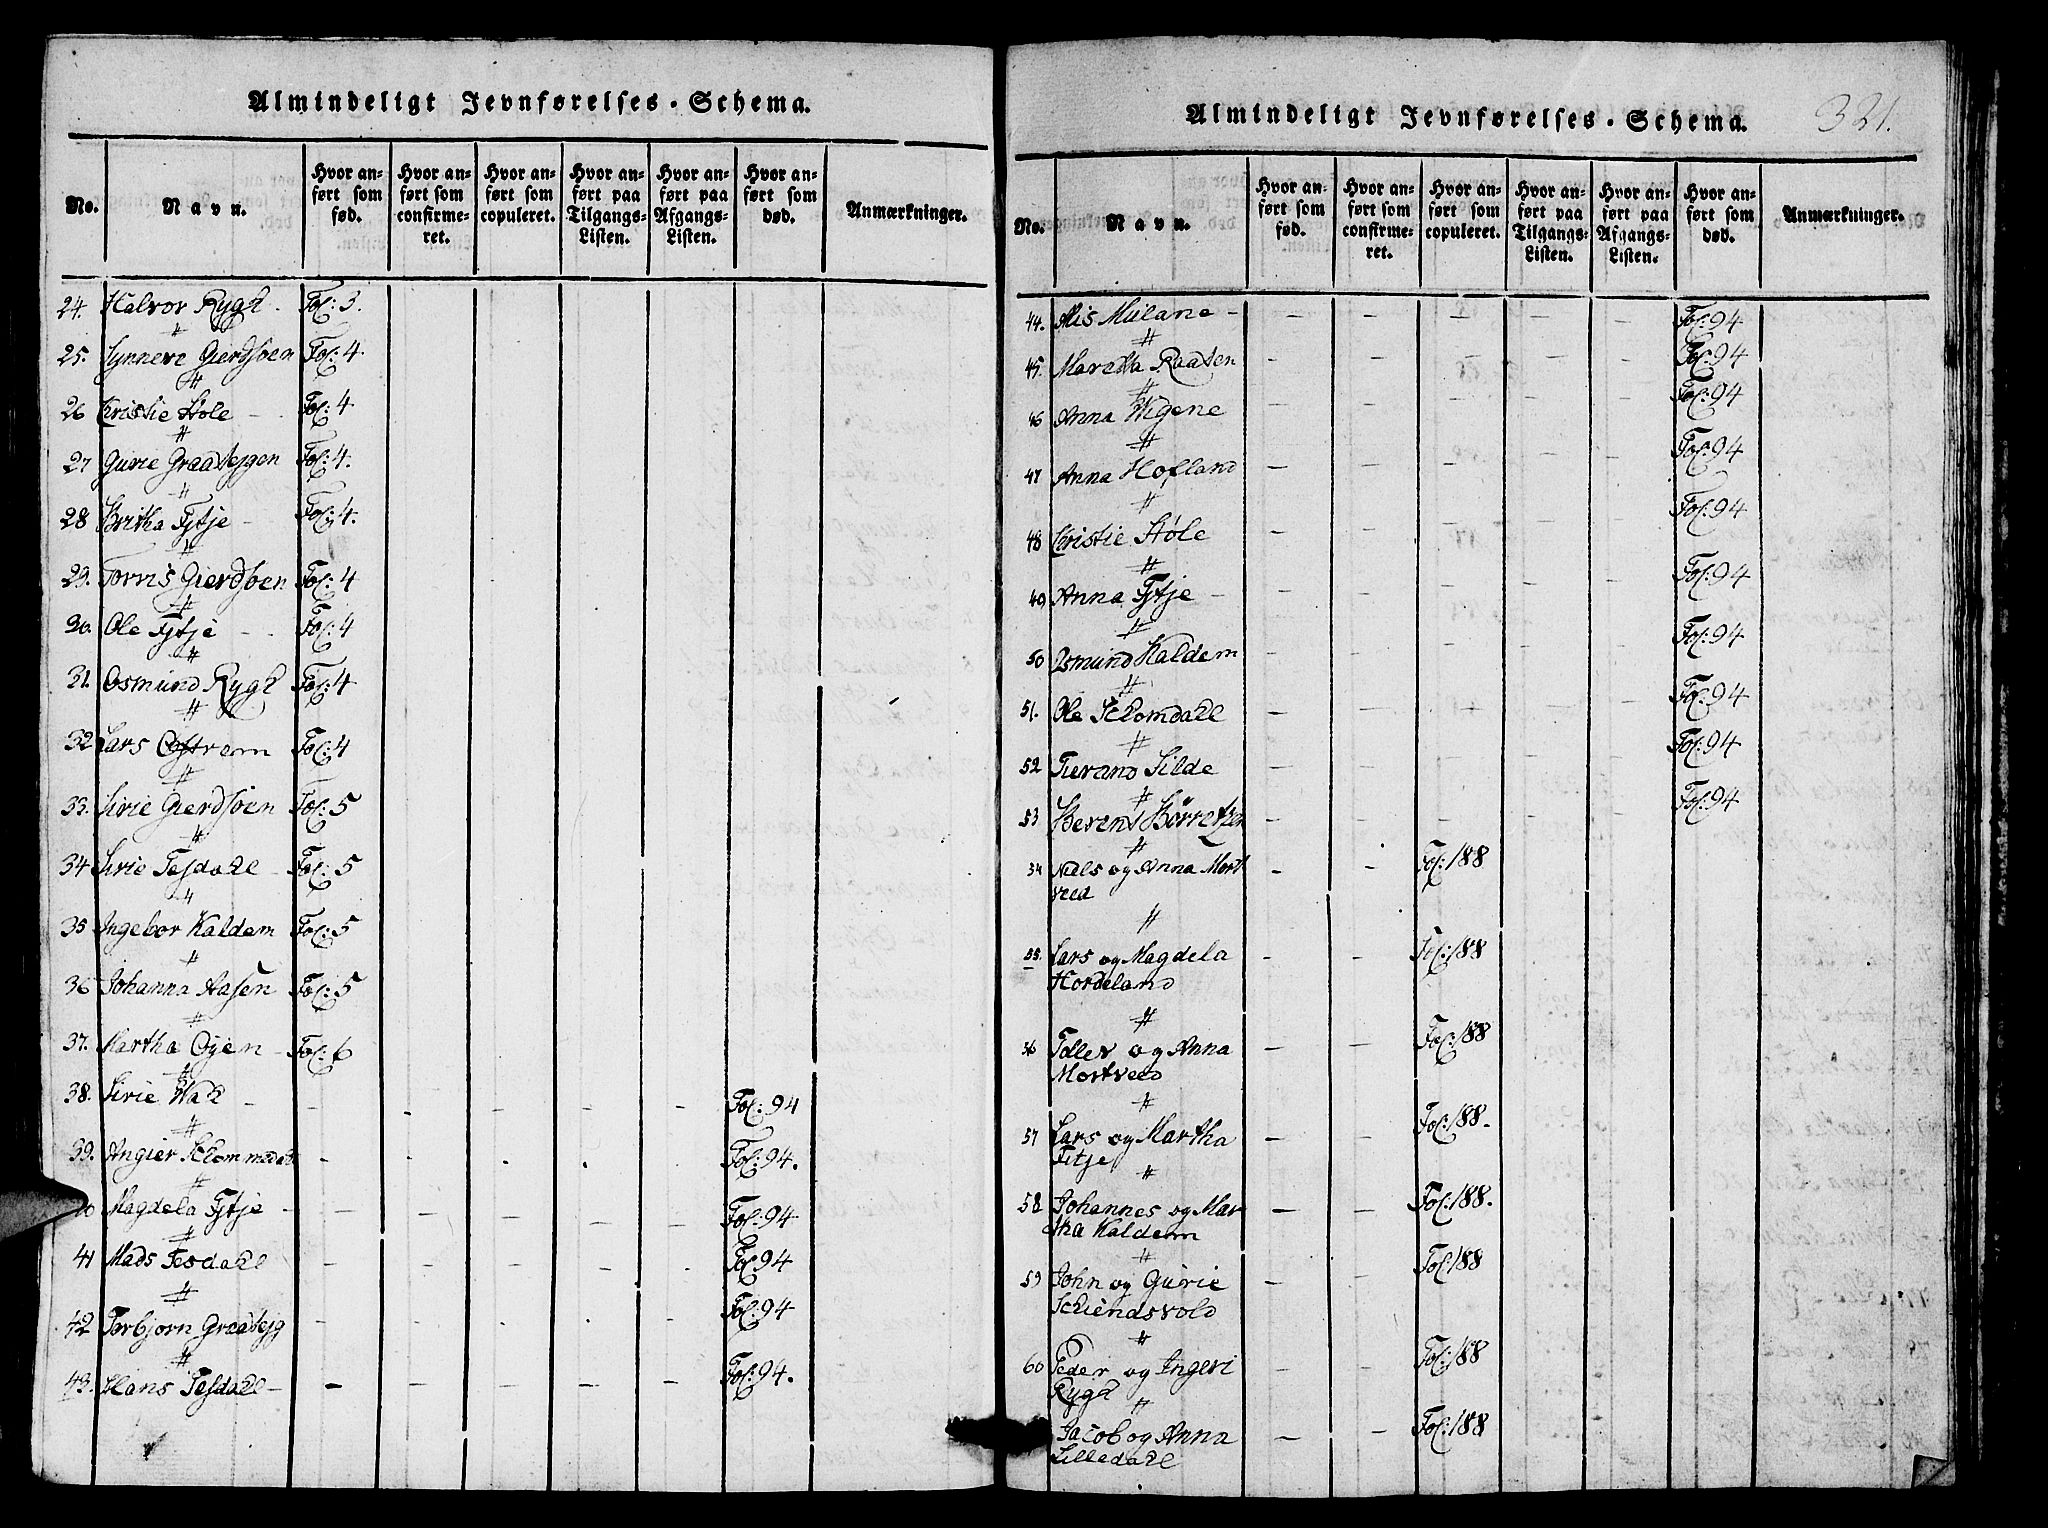 Almindeligt Jevnførelses-Schema.
No. Navn. Hvor anført som fød. Hvor anført som confirmeret. Hvor anført som copuleret. Hvor anført paa Tilgangs-Listen. Hvor anført paa Afgangs-Listen. Hvor anført som død. Anmærkninger.
24. Halvor Rygh - Fol: 3.
25. Synneve Gierdsøen Fol: 4.
26 Christie Støle - Fol: 4
27 Gurie Graatejgen Fol: 4.
28 Britha Fytje - Fol: 4.
29. Tornis Gierdsøen Fol: 4
30. Ole Fytje - Fol: 4
31. Osmund Rygh Fol: 4
32 Lars Ostrem Fol: 4
33. Sirie Gierdsøen Fol: 5
34 Sirie Tesdahl Fol: 5
35 Ingebor Kaldem Fol: 5
36 Johanna Aasen Fol: 5
37. Martha Oyen - Fol: 6
38. Sirie - - - - - - Fol: 94
39. Angier - - - - - Fol: 94.
40 Magdela Fytje - - - - - - Fol: 94
41 Mads Tesdahl - - - - - Fol: 94
42 Torbjorn Graatejg - - - - - Fol: 94
43. Hans Tesdahl - - - - - - Fol: 94.
Almindeligt Jevnførelses-Schema. 321.
No. Navn. Hvor anført som fød. Hvor anført som confirmeret. Hvor anført som copuleret. Hvor anført paa Tilgangs-Listen. Hvor anført paa Afgangs-Listen. Hvor anført som død. Anmærkninger.
44. Mulane - - - - - - Fol: 94
45. Maretha Raaten - - - - - Fol: 94
46 Anna Wigene - - - - - Fol: 94
47 Anna Hofland - - - - - Fol: 94
48 Christie Støle - - - - - Fol: 94
49 Anna Fytje - - - - - - Fol: 94
50 Osmund Kaldem - - - - - Fol: 94
51. Ole - - - - - Fol: 94
52 Tierand Silde - - - - - Fol: 94
53 Berent Børretzen - - - - - Fol: 94
54 Niels og Anna Mort - - Fol: 188
veed
55. Lars og Magdela - - Fol: 188
Hordeland
56 Tollev og Anna - - Fol: 188
Mortveed
57 Lars og Martha - - Fol: 188.
Fitje
58 Johannes og Mar - - Fol: 188.
tha Kaldem
59 John og Gurie - - Fol: 188
60 Peder og Ingeri - - Fol: 188
Rygh
Jacob og Anna - - Fol: 188
Lilledahl